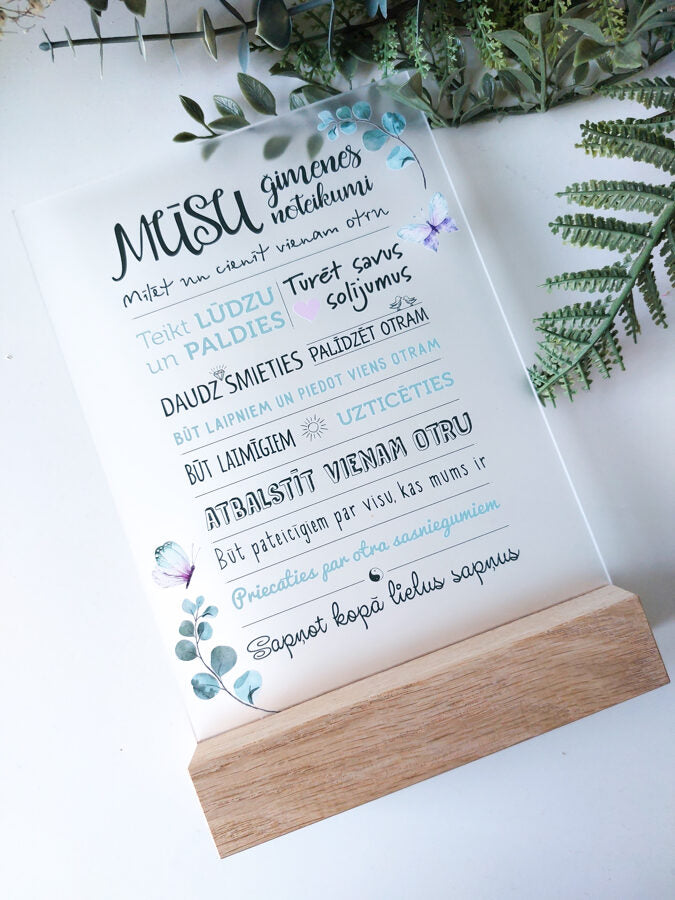 MŪSU ģimenes
noteikumi
Mīlēt un cienīt vienam otru
Teikt LŪDZU
un PALDIES
Turēt savus
solījumus
DAUDZ SMIETIES PALĪDZĒT OTRAM
BŪT LAIPNIEM UN PIEDOT VIENS OTRAM
BŪT LAIMĪGIEM UZTICĒTIES
ATBALSTĪT VIENAM OTRU
Būt pateicīgiem par visu, kas mums ir
Priecāties par otra sasniegumiem
Sapņot kopā lielus sapņus